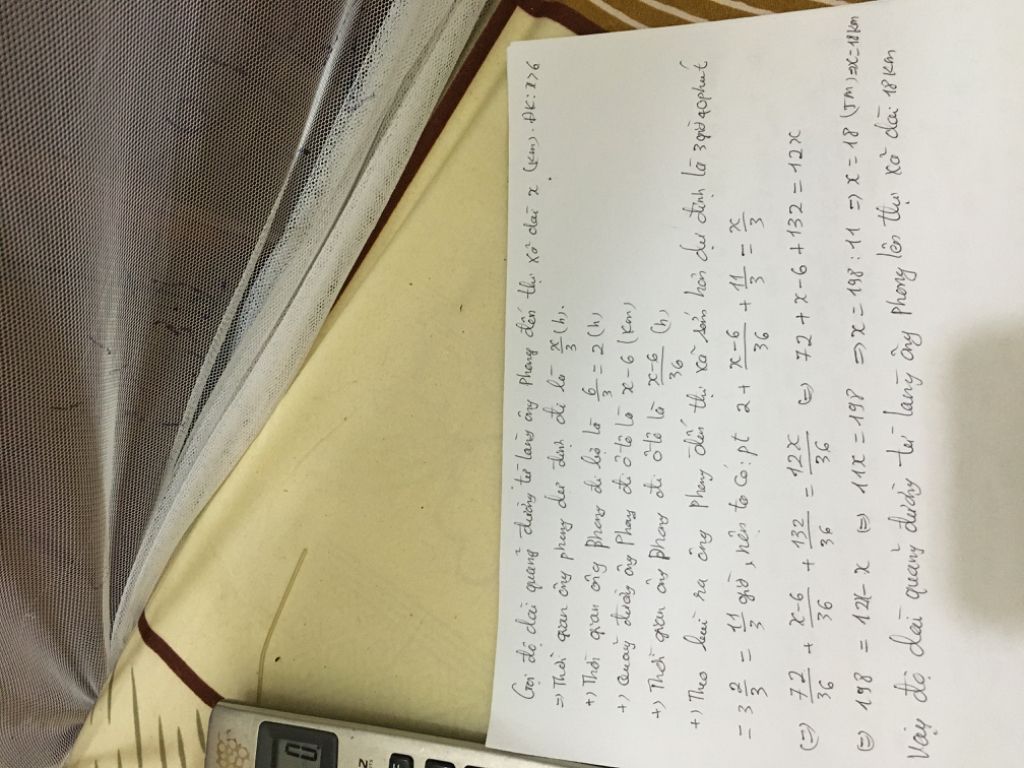 Gọi độ dài quãng đường từ làng ông Phong đến thị xã dài x (km). ĐK: x>6
=> Thời gian ông phong dự định đi là x/3 (h).
+) Thời gian ông phong đi bộ là 6/3 = 2 (h)
+) Quãng đường ông Phong đi ô tô là x-6 (km)
+) Thời gian ông phong đi ô tô là x-6/36 (h)
+) Theo bài ra ông phong đến thị xã sớm hơn dự định là 3 giờ 40 phút
= 3 2/3 = 11/3 giờ, nên ta có: pt 2 + x-6/36 + 11/3 = x/3
(=) 72/36 + x-6/36 + 132/36 = 12x/36 (=) 72 + x - 6 + 132 = 12x
(=) 198 = 12x - x (=) 11x = 198 => x = 198 : 11 => x = 18 (TM) => x = 18 km
Vậy độ dài quãng đường từ làng ông phong lên thị xã dài 18 km
0